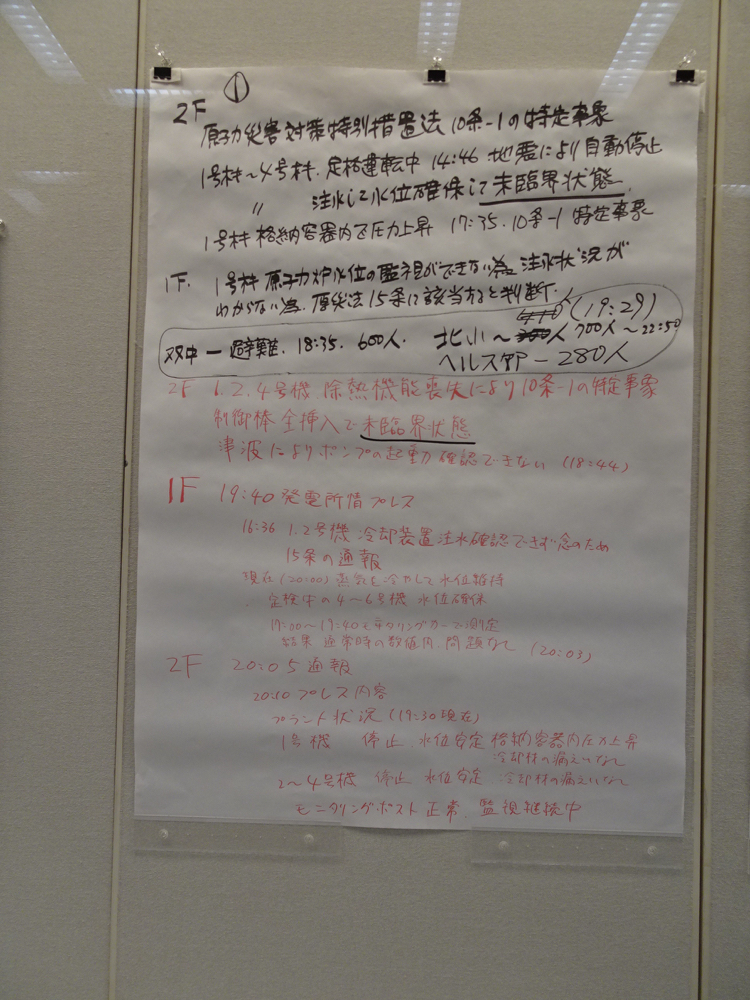 ①
2F
原子力災害対策特別措置法 10条-1の特定事象
1号材〜4号材. 定格運転中 14:46 地震により自動停止
〃 注水して水位確保して未臨界状態
1号材 格納容器内で圧力上昇 17:35. 10条-1 特定事象
1F. 1号材 原子力炉水位の監視ができない為 注水状況が
わからない為. 原災法15条に該当すると判断.
(19:29)
双中 ー 避難. 18:35. 600人. 北小〜 人 700人〜22:50
ヘルス ー 280人
2F 1.2.4号機 除熱機能喪失により10条-1の特定事象
制御棒全挿入で未臨界状態
津波によりポンプの起動確認できない (18:44)
1F 19:40 発電所情プレス
16:36 1.2号機 冷却装置注水確認できず念のため
15条の通報
現在(20:00) 蒸気を冷力して水位維持
定検中の4〜6号機 水位確保
19:00〜19:40モニタリングカーで測定
結果 通常時の数値内. 問題なし (20:03)
2F 20:05通報
20:10プレス内容
プラント状況(19:30現在)
1号機 停止. 水位安定 格納容器内圧力上昇
冷却材の漏えいなし
2〜4号機 停止 水位安定 冷却材の漏えいなし
モニタリングポスト正常. 監視継続中